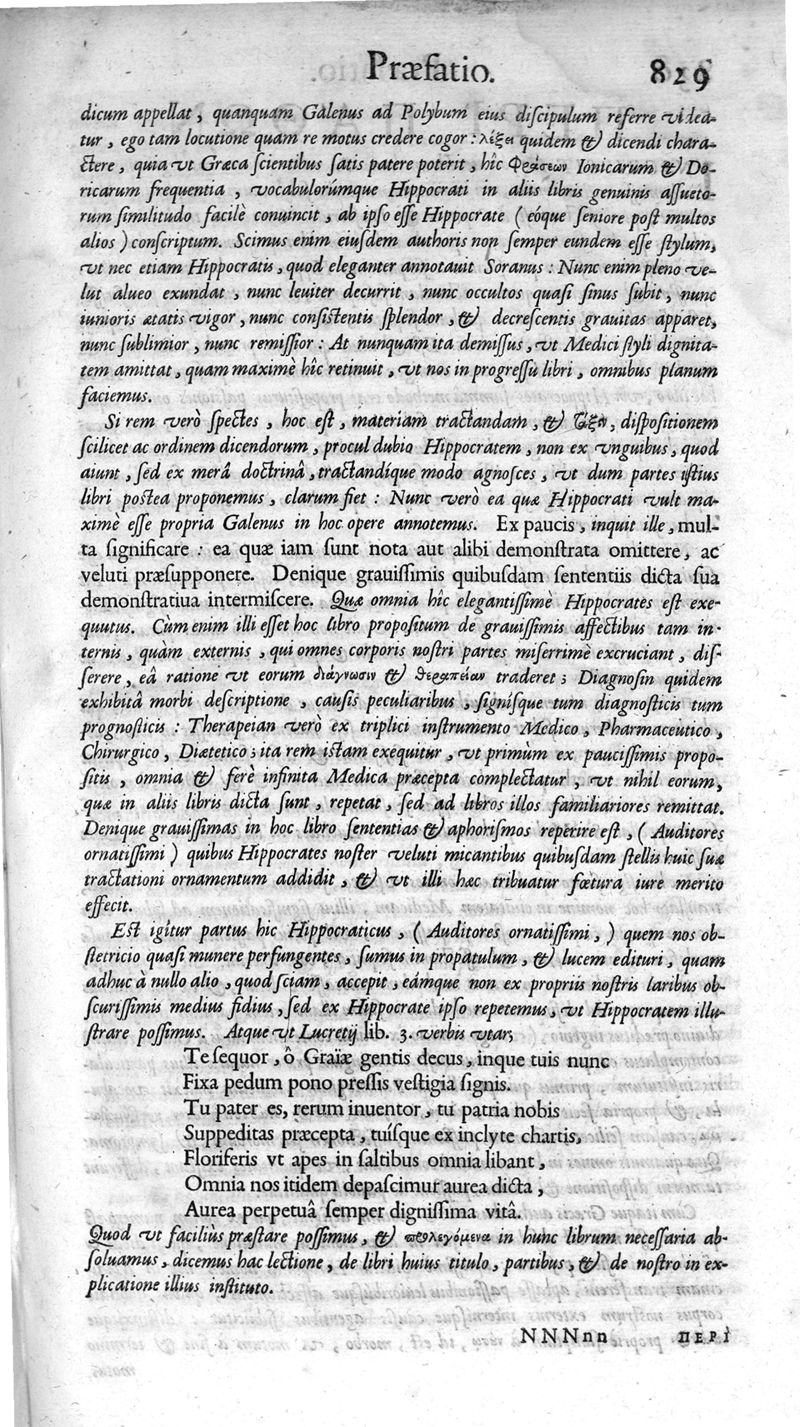 Præfatio. 829
dicum appellat, quanquam Galenus ad Polybum eius discipulum referre videa-
tur, ego tam locutione quam re motus credere cogor: λέξει quidem & dicendi chara-
ctere, quia vt Græca scientibus satis patere poterit, hîc Φράσεων Ionicarum & Do-
ricarum frequentia, vocabulorúmque Hippocrati in aliis libris genuinis assueto-
rum similitudo facilè conuincit, ab ipso esse Hippocrate (eóque seniore post multos
alios) conscriptum. Scimus enim eiusdem authoris non semper eundem esse stylum,
vt nec etiam Hippocratis, quod eleganter annotauit Soranus: Nunc enim pleno ve-
lut alueo exundat, nunc leuiter decurrit, nunc occultos quasi sinus subit, nunc
iunioris ætatis vigor, nunc consistentis splendor, & decrescentis grauitas apparet,
nunc sublimior, nunc remissior: At nunquam ita demissus, vt Medici styli dignita-
tem amittat, quam maximè hîc retinuit, vt nos in progressu libri, omnibus planum
faciemus.
Si rem verò spectes, hoc est, materiam tractandam, & τάξιν, dispositionem
scilicet ac ordinem dicendorum, procul dubio Hippocratem, non ex vnguibus, quod
aiunt, sed ex merâ doctrinâ, tractandíque modo agnosces, vt dum partes istius
libri postea proponemus, clarum fiet: Nunc verò ea quæ Hippocrati vult ma-
ximè esse propria Galenus in hoc opere annotemus. Ex paucis, inquit ille, mul-
ta significare: ea quæ iam sunt nota aut alibi demonstrata omittere, ac
veluti præsupponere. Denique grauissimis quibusdam sententiis dicta sua
demonstratiua intermiscere. Quæ omnia hîc elegantissimè Hippocrates est exe-
quutus. Cùm enim illi esset hoc libro propositum de grauissimis affectibus tam in-
ternis, quàm externis, qui omnes corporis nostri partes miserrimè excruciant, dis-
serere, eâ ratione vt eorum διάγνωσιν & θεραπείαν traderet; Diagnosin quidem
exhibitâ morbi descriptione, causis peculiaribus, signísque tum diagnosticis tum
prognosticis: Therapeian verò ex triplici instrumento Medico, Pharmaceutico,
Chirurgico, Diætetico; ita rem istam exequitur, vt primùm ex paucissimis propo-
sitis, omnia & ferè infinita Medica præcepta complectatur, vt nihil eorum,
quæ in aliis libris dicta sunt, repetat, sed ad libros illos familiariores remittat.
Denique grauissimas in hoc libro sententias & aphorismos reperire est, (Auditores
ornatissimi) quibus Hippocrates noster veluti micantibus quibusdam stellis huic suæ
tractationi ornamentum addidit, & vt illi hæc tribuatur fœtura iure merito
effecit.
Est igitur partus hic Hippocraticus, (Auditores ornatissimi,) quem nos ob-
stetricio quasi munere perfungentes, sumus in propatulum, & lucem edituri, quam
adhuc à nullo alio, quod sciam, accepit, eámque non ex propriis nostris laribus ob-
scurissimis medius fidius, sed ex Hippocrate ipso repetemus, vt Hippocratem illu-
strare possimus. Atque vt Lucretij lib. 3. verbis vtar;
Te sequor, ô Graïæ gentis decus, inque tuis nunc
Fixa pedum pono pressis vestigia signis.
Tu pater es, rerum inuentor, tu patria nobis
Suppeditas præcepta, tuísque ex inclyte chartis,
Floriferis vt apes in saltibus omnia libant,
Omnia nos itidem depascimur aurea dicta,
Aurea perpetuâ semper dignissima vitâ.
Quod vt faciliùs præstare possimus, & προλεγόμενα in hunc librum necessaria ab-
soluamus, dicemus hac lectione, de libri huius titulo, partibus, & de nostro in ex-
plicatione illius instituto.
NNNnn ΠΕΡῚ